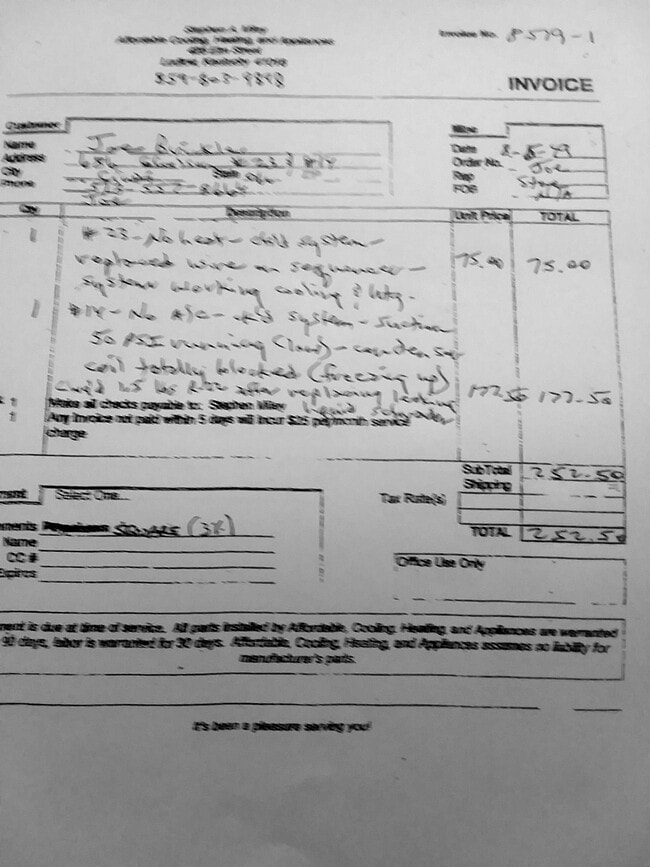 Stephen A. Wiley
Affordable Cooling, Heating, and Appliances
Elm Street
Ludlow, Kentucky 41016
859-803-9898
Invoice No. 8579-1
INVOICE
Customer
Name Joe
Address #23 & #14
City State
Phone
Joe
Misc
Date
Order No. Joe
Rep Steve
FOB N/A
Qty Description Unit Price TOTAL
1 #23 - No heat - chkd system -
replaced wire on sequencer -
system working cooling & htg. 75.00 75.00
1 #14 - No A/C - chkd system - Suction
50 PSI running (low) - condenser
coil totally blocked (freezing up)
1.5 lbs R-22 after replacing leaking 177.50 177.50
liquid schrader
1 Make all checks payable to: Stephen Wiley
1 Any invoice not paid within 5 days will incur $25 per/month service
charge
SubTotal 252.50
Shipping
Payment Select One...
Tax Rate(s)
TOTAL 252.50
(3%)
Name
CC #
Expires
Office Use Only
ment is due at time of service. All parts installed by Affordable, Cooling, Heating, and Appliances are warranted
90 days, labor is warranted for 30 days. Affordable, Cooling, Heating, and Appliances assumes no liability for
manufacturer's parts.
It's been a pleasure serving you!